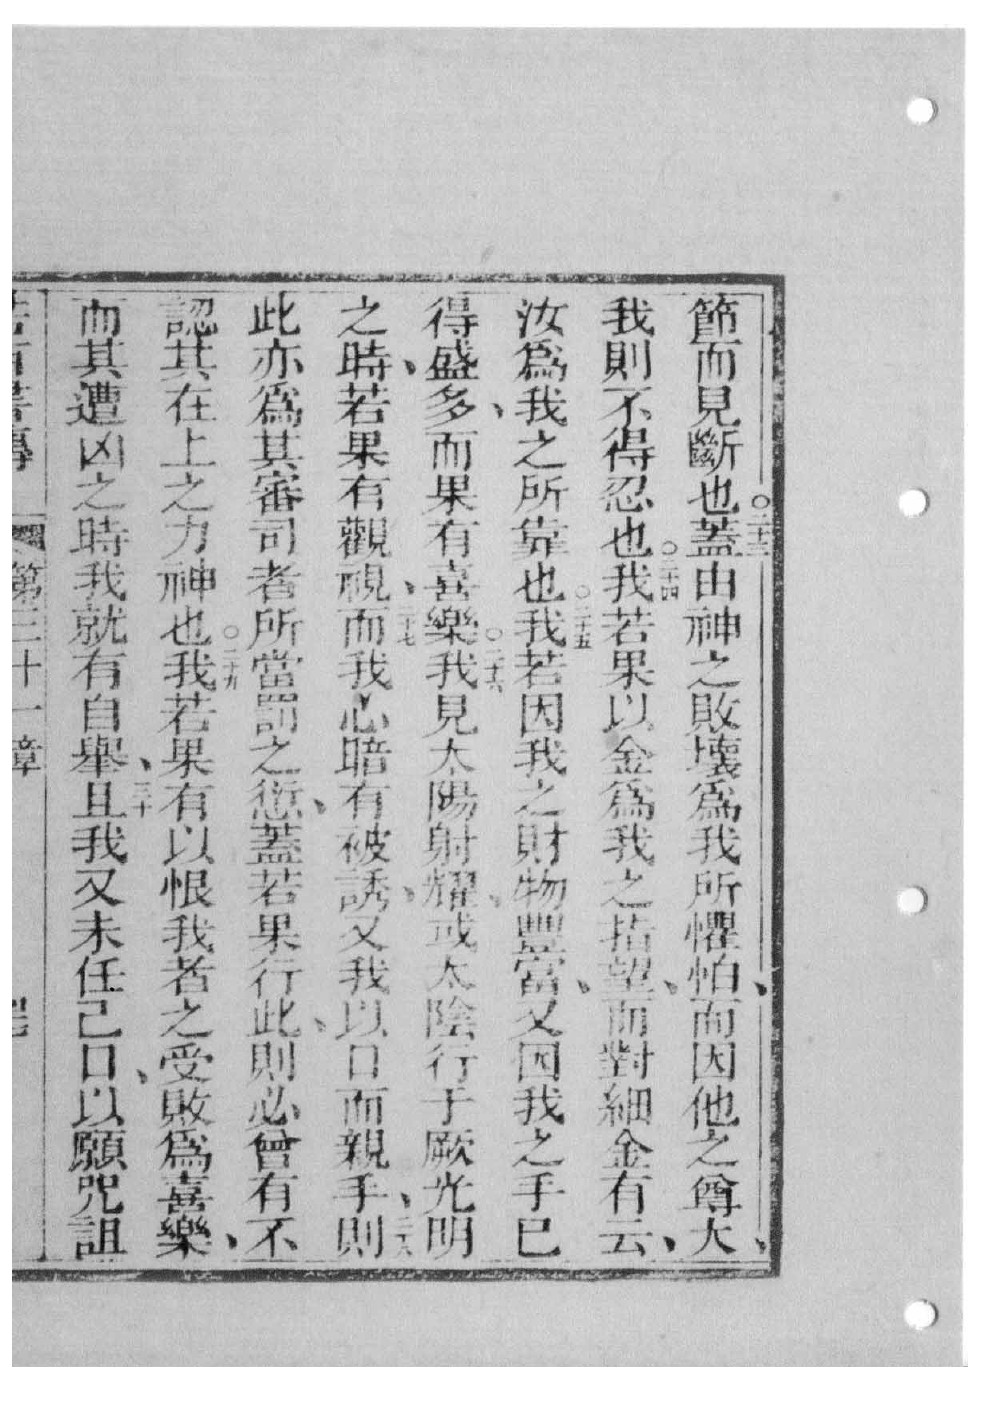 節而見斷也○二十三蓋由神之敗壞爲我所懼怕、而因他之尊大、
我則不得忍也○二十四我若果以金爲我之指望、而對細金有云、
汝爲我之所靠也○二十五我若因我之財物豐富、又因我之手已
得盛多、而果有喜樂○二十六我見太陽射耀、或太陰行于厥光明
之時、若果有觀視、二十七而我心暗有被誘、又我以口而親手、二十八則
此亦爲其審司者所當罰之愆、蓋若果行此、則必曾有不
認其在上之力神也○二十九我若果有以恨我者之受敗爲喜樂、
而其遭凶之時我就有自舉、三十且我又未任己口、以願咒詛
第三十一章